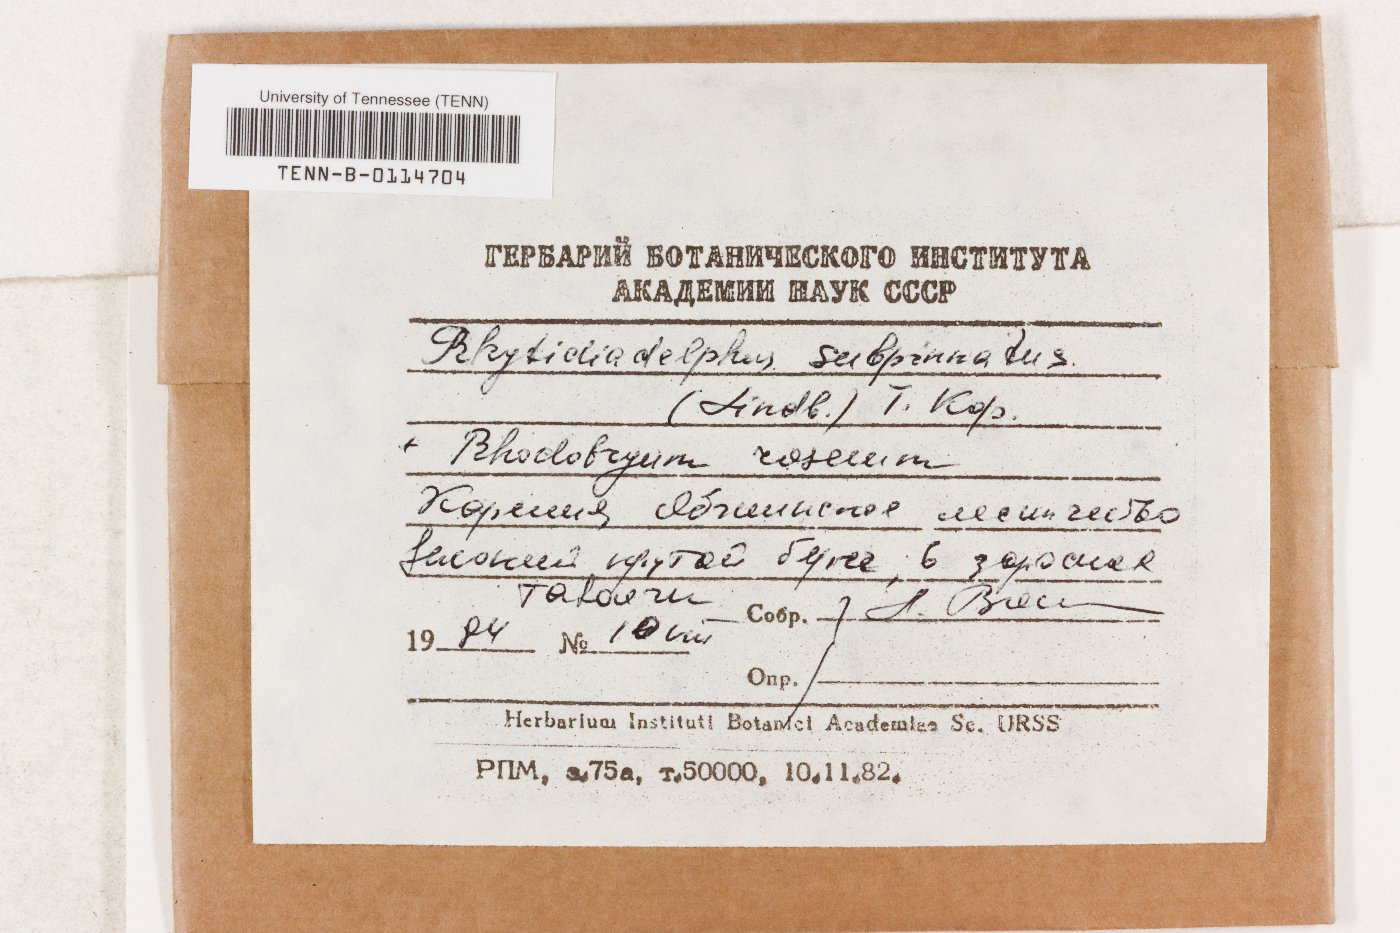 University of Tennessee (TENN)
TENN-B-0114704
ГЕРБАРИЙ БОТАНИЧЕСКОГО ИНСТИТУТА
АКАДЕМИИ НАУК СССР
Rhytidiadelphus subpinnatus
(Lindb.) T. Kop.
+ Rhodobryum roseum
Карелия, лесничество
Высокий крутой берег, в зарослях
таволги
Собр.
19 84 № 10 VIII
Опр.
Herbarium Instituti Botanici Academiae Sc. URSS
РПМ, з.75а, т.50000, 10.11.82.